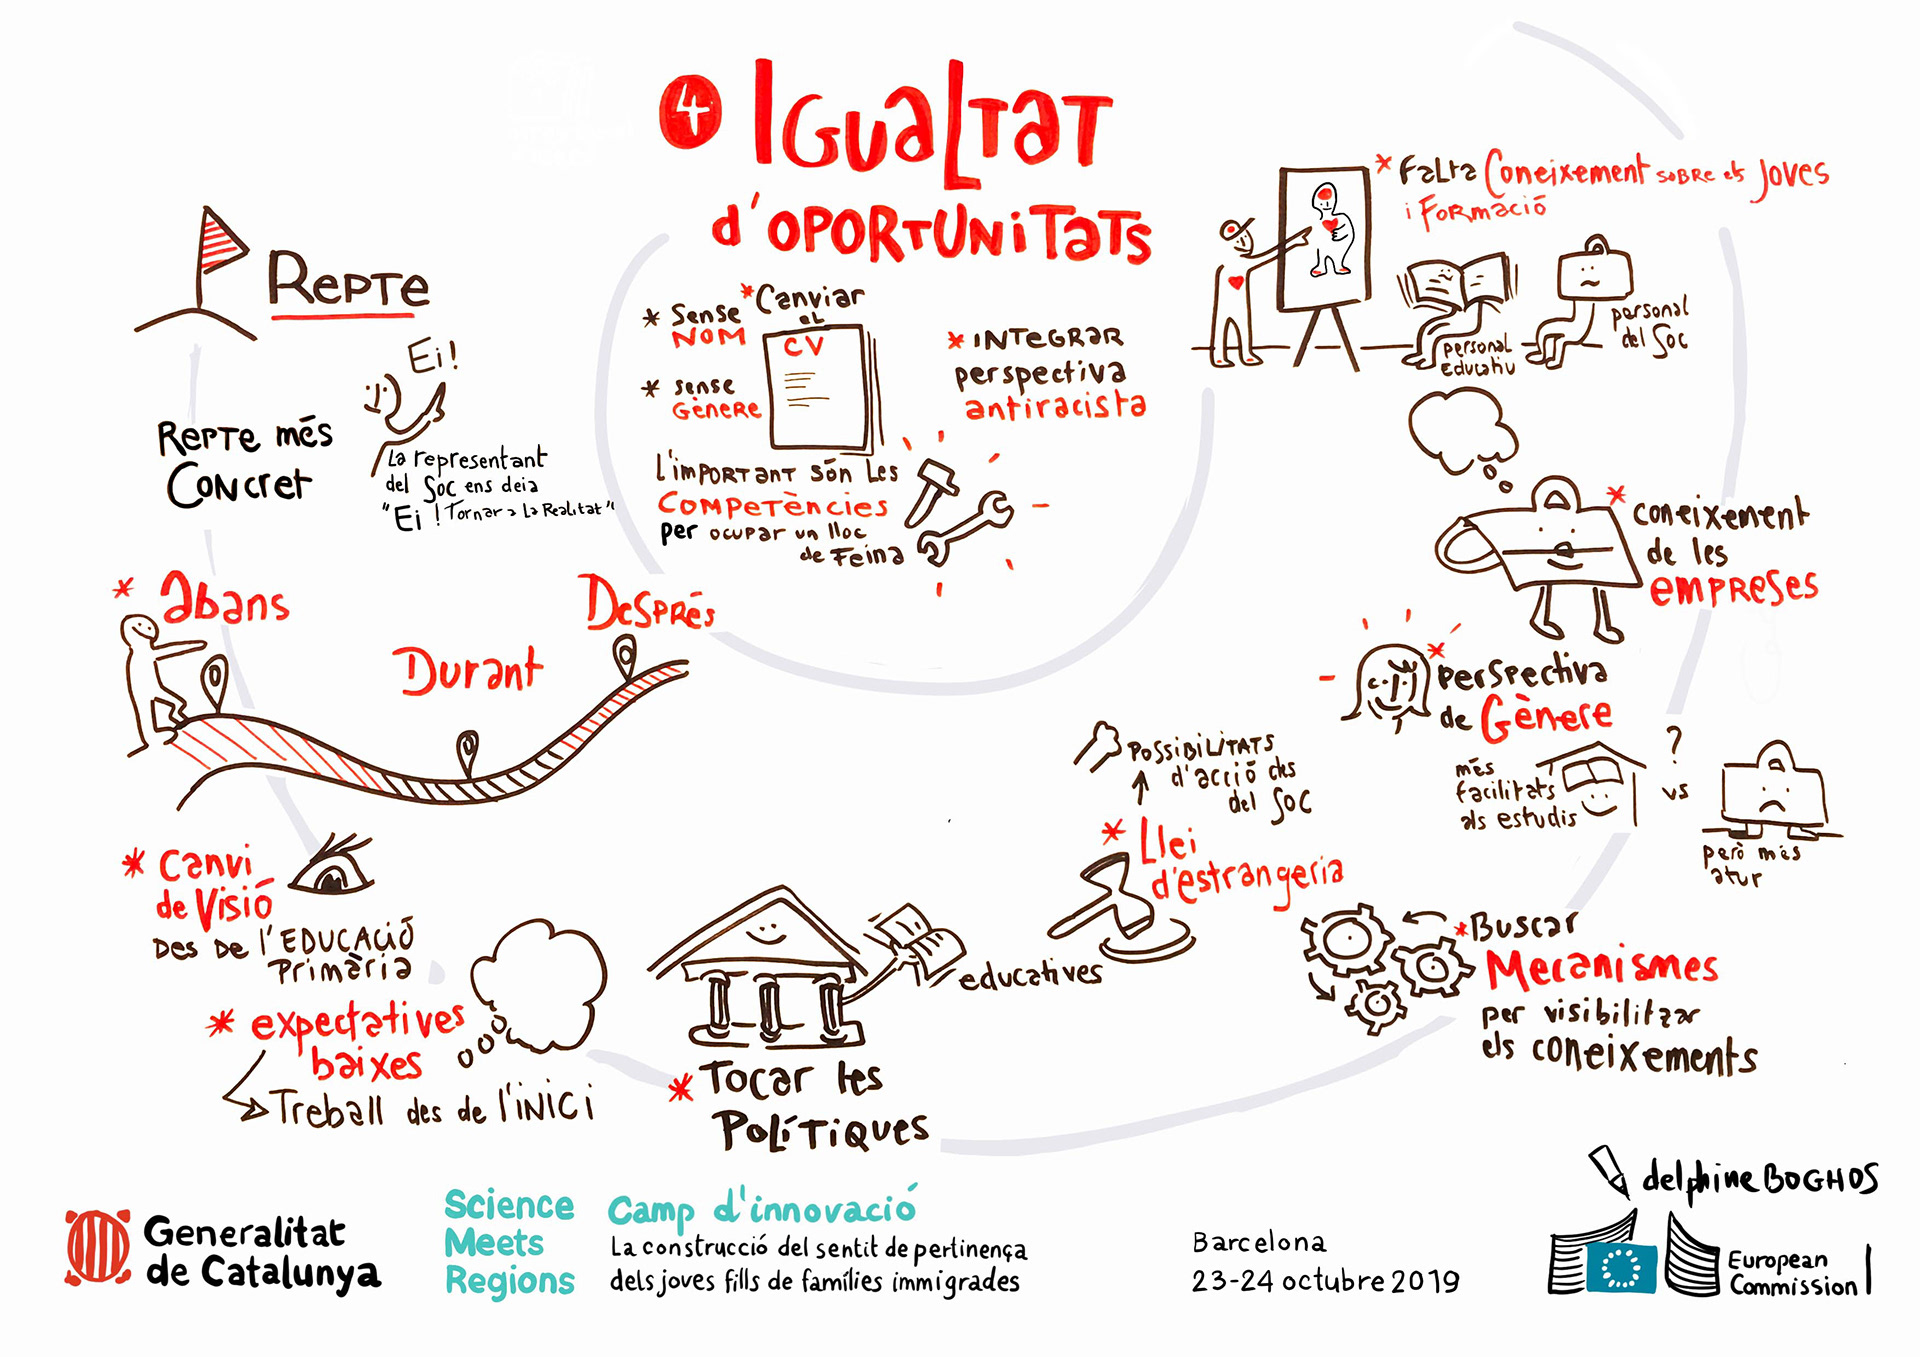 4 Igualtat
d'oportunitats
Repte
Ei!
Repte més
Concret
La representant
del Soc ens deia
"Ei! Tornar a la Realitat"
* Sense
NOM
* sense
Gènere
* Canviar
el
CV
* Integrar
perspectiva
antiracista
L'important són les
Competències
per ocupar un lloc
de feina
* Falta Coneixement sobre els Joves
i Formació
personal
educatiu
personal
del Soc
* coneixement
de les
empreses
* perspectiva
de Gènere
més
facilitats
als estudis
?
vs
però més
atur
* abans
Durant
Després
* Canvi
de Visió
des de l'Educació
Primària
* expectatives
baixes
Treball des de l'inici
* Tocar les
Polítiques
educatives
Possibilitats
d'acció des
del Soc
* Llei
d'estrangeria
* Buscar
Mecanismes
per visibilitzar
els coneixements
Generalitat
de Catalunya
Science
Meets
Regions
Camp d'innovació
La construcció del sentit de pertinença
dels joves fills de famílies immigrades
Barcelona
23-24 octubre 2019
delphine BOGHOS
European
Commission